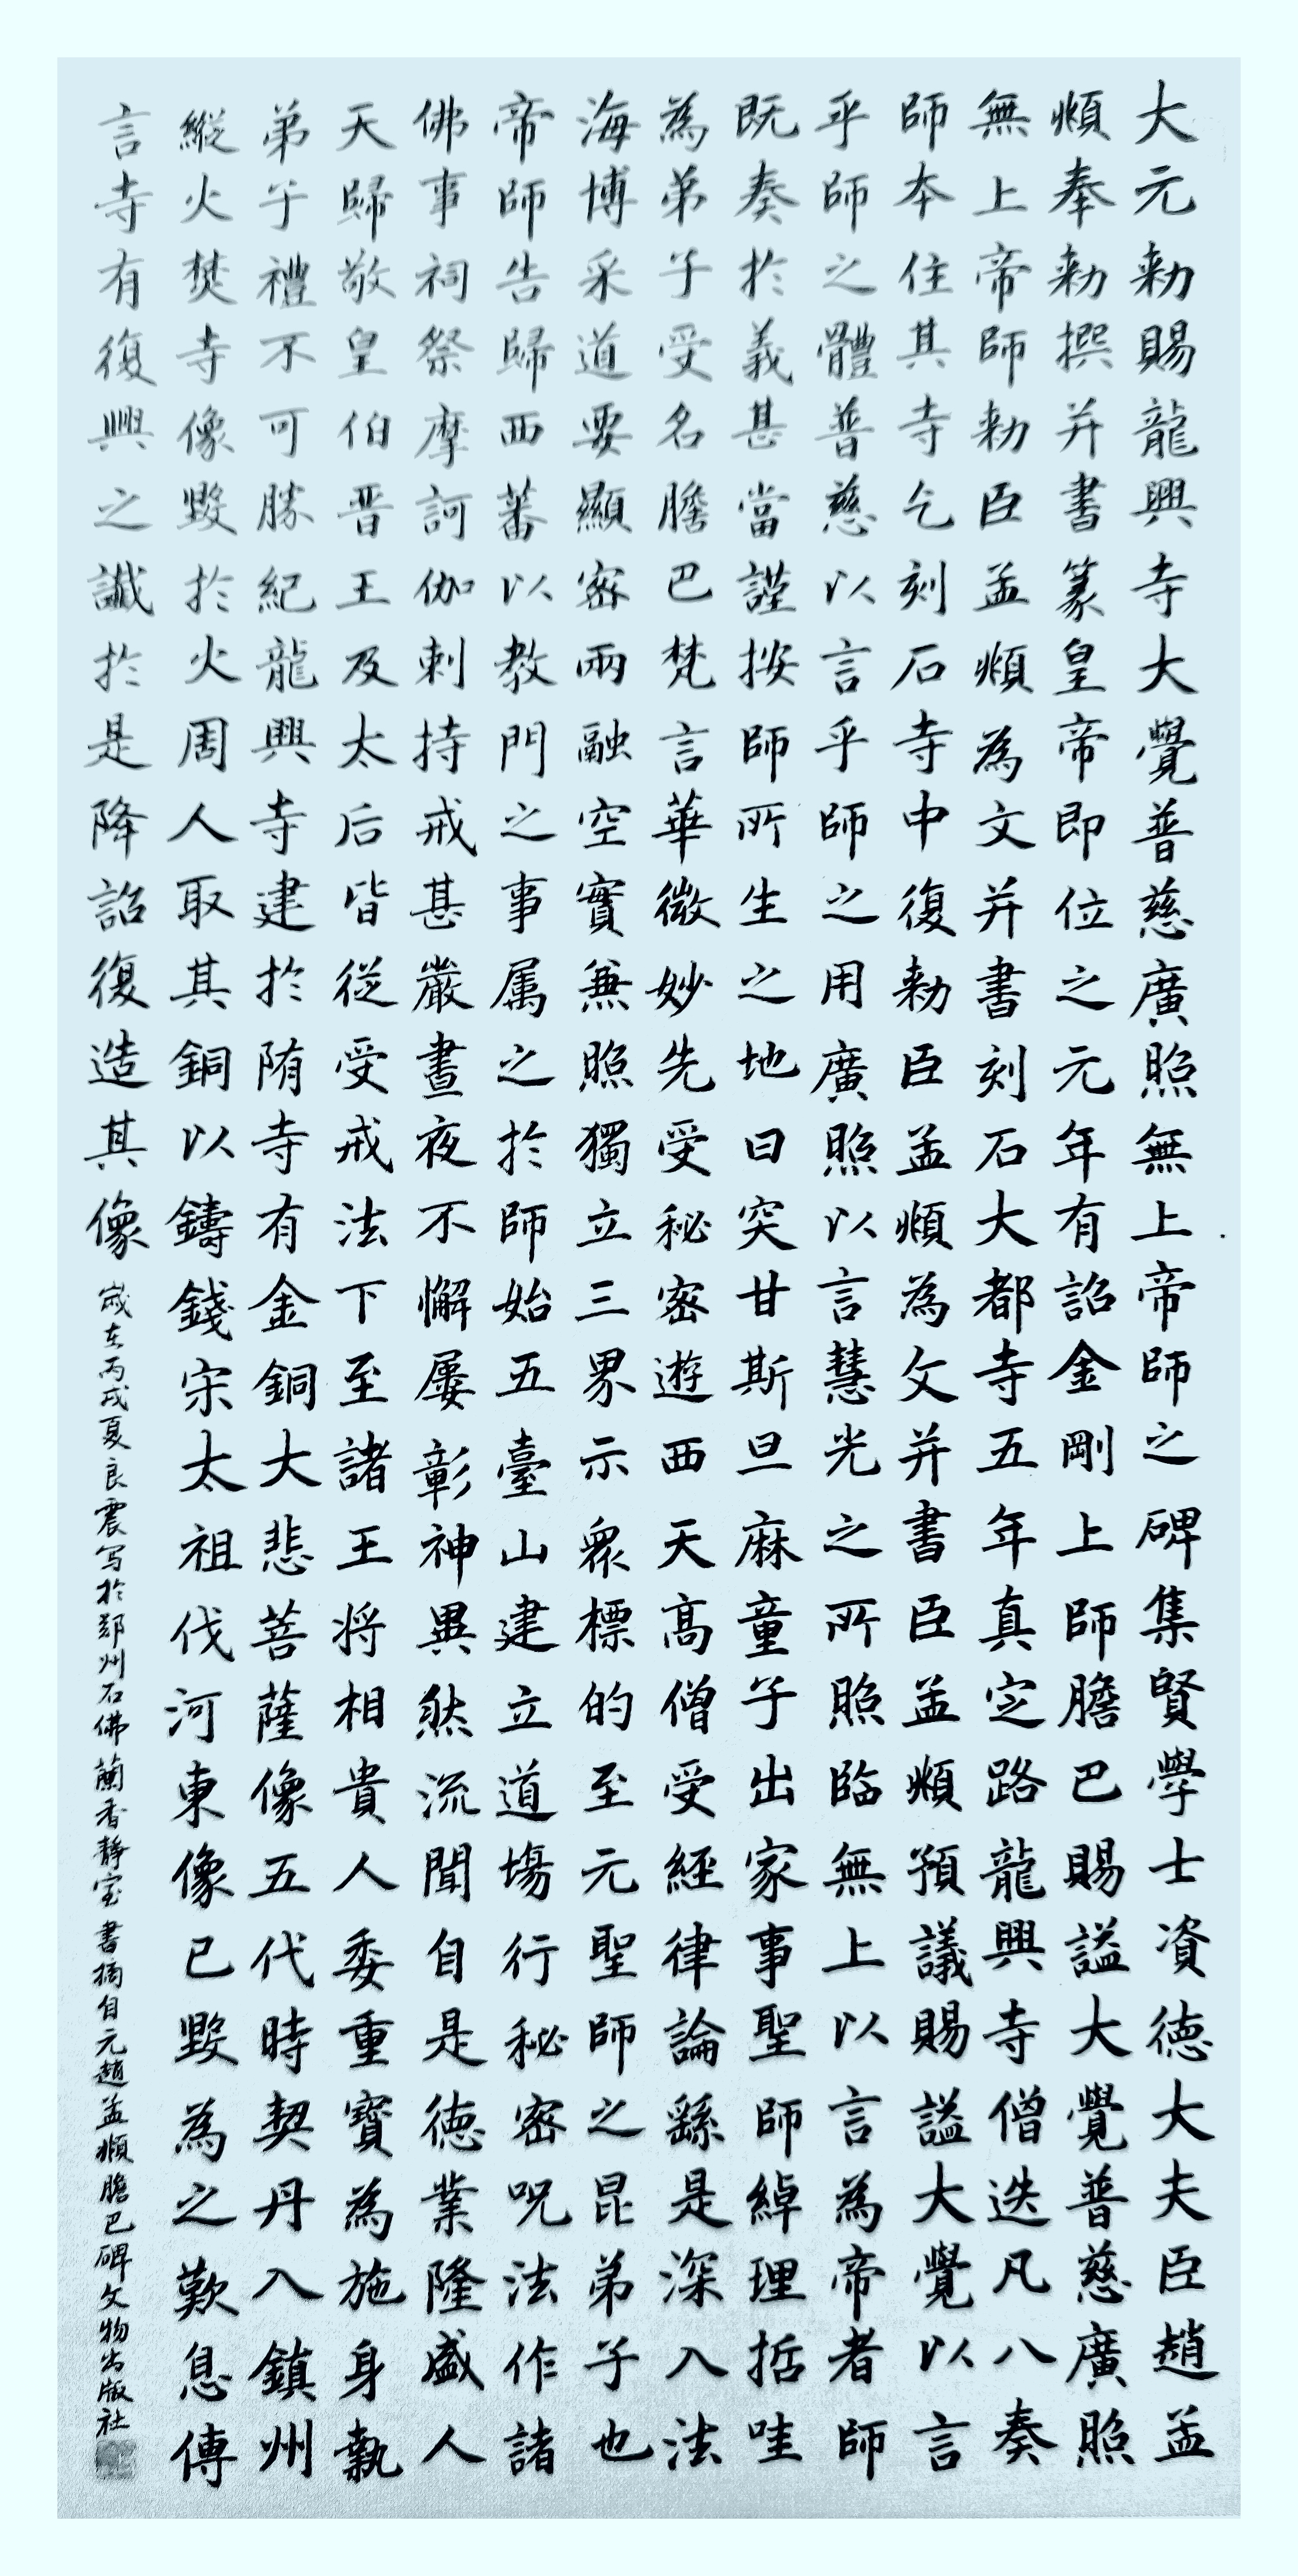 大元勑賜龍興寺大覺普慈廣照無上帝師之碑集賢學士資德大夫臣趙孟
頫奉勑撰并書篆皇帝即位之元年有詔金剛上師膽巴賜謚大覺普慈廣照
無上帝師勑臣孟頫為文并書刻石大都寺五年真定路龍興寺僧迭凡八奏
師本住其寺乞刻石寺中復勑臣孟頫為文并書臣孟頫預議賜謚大覺以言
乎師之體普慈以言乎師之用廣照以言慧光之所照臨無上以言為帝者師
既奏於義甚當謹按師所生之地曰突甘斯旦麻童子出家事聖師綽理哲哇
為弟子受名膽巴梵言華微妙先受秘密遊西天高僧受經律論繇是深入法
海博采道要顯密兩融空實兼照獨立三界示眾標的至元聖師之昆弟子也
帝師告歸西蕃以教門之事属之於師始五臺山建立道場行秘密呪法作諸
佛事祠祭摩訶伽剌持戒甚嚴晝夜不懈屡彰神異然流聞自是德業隆盛人
天歸敬皇伯晋王及太后皆從受戒法下至諸王将相貴人委重寶為施身執
弟子禮不可勝紀龍興寺建於隋寺有金銅大悲菩薩像五代時契丹入鎮州
縱火焚寺像毀於火周人取其銅以鑄錢宋太祖伐河東像已毀為之歎息傳
言寺有復興之讖於是降詔復造其像
歲在丙戌夏良震写於鄭州石佛蘭香靜室書摘自元趙孟頫膽巴碑文物出版社